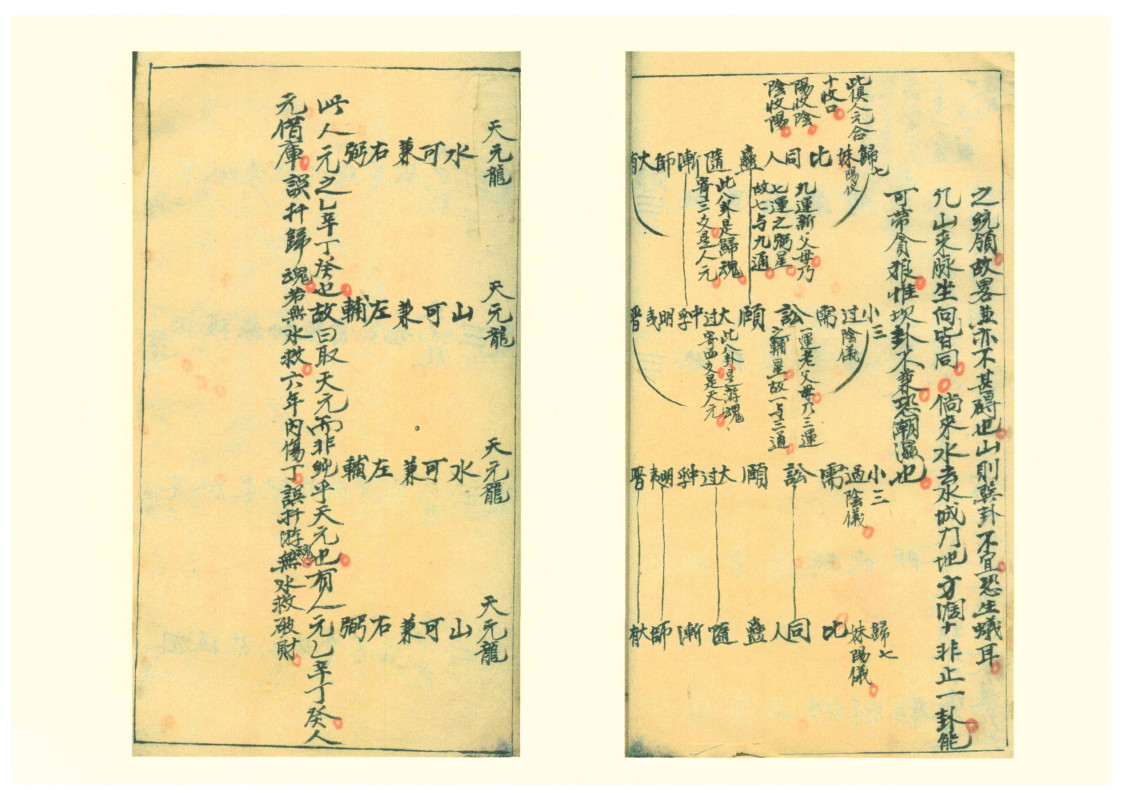 之統領故畧並亦不甚碍也山則巽卦不宜恐生蟻耳
凡山來脉坐向皆同倘來水去水城门地方濶十非止一卦能
可帶貪狼惟坎卦不兼恐潮濕也
此慎人元合
十收口
陽收陰
陰收陽
歸七
妹陽儀
比
同人
蠱
隨
漸
師
大有
九運新父母乃
七運之弼星
故七与九通
此八卦是歸魂
寄三爻是人元
小三
过陰儀
需
訟
頤
大过
中孚
明夷
晋
一運老父母乃三運
之輔星故一与三通
此八卦是游魂
寄四爻是天元
小三
過陰儀
需
訟
頤
大过
中孚
明夷
晋
歸七
妹陽儀
比
同人
蠱
隨
漸
師
大有
天元龍
水可兼右弼
天元龍
山可兼左輔
天元龍
水可兼左輔
天元龍
山可兼右弼
此人元之乙辛丁癸也故曰取天元而非純乎天元也有人元乙辛丁癸人
元借庫誤扦歸魂若無水救六年內傷丁誤扦游魂無水救破財